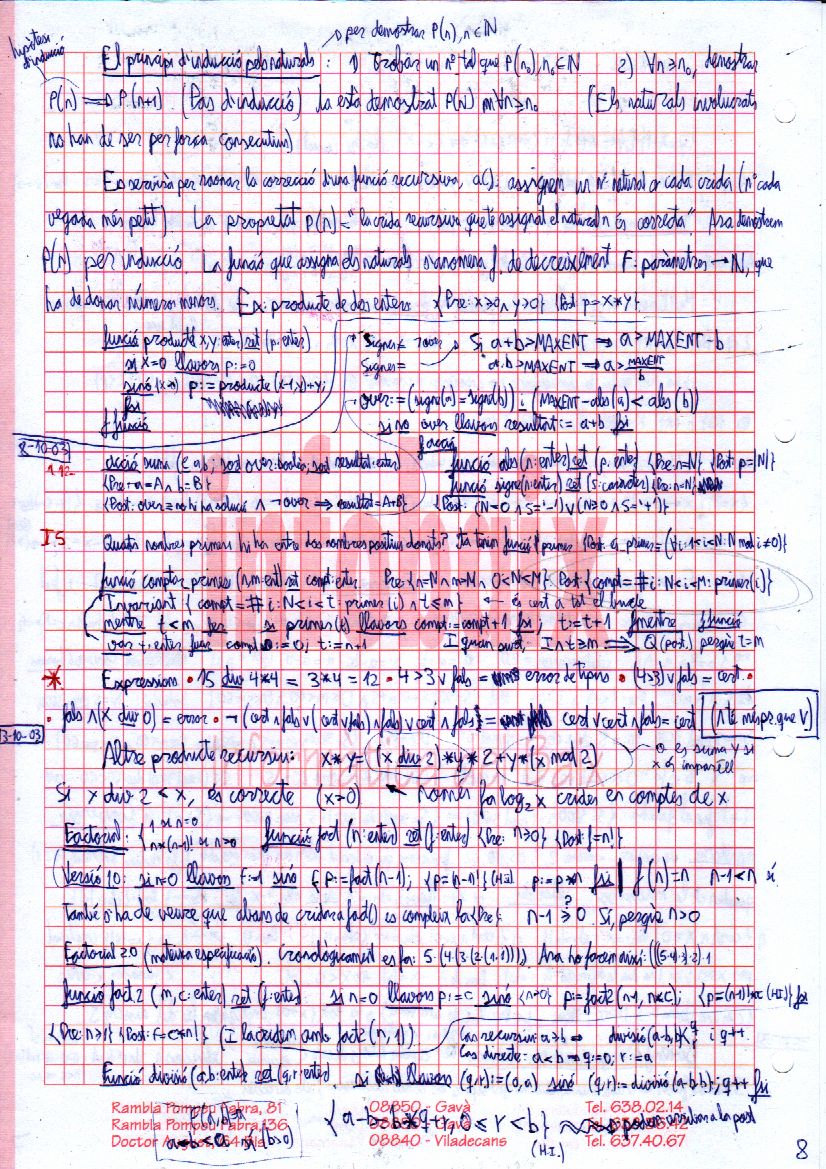 per demostrar P(n), n∈ℕ
hipòtesi d'inducció
El principi d'inducció pels naturals : 1) Trobar un nº tal que P(n₀), n₀∈ℕ 2) ∀n≥n₀, demostrar
P(n) ⟹ P(n+1). (Pas d'inducció) Ja està demostrat P(N) ∀n≥n₀ (Els naturals involucrats
no han de ser per força consecutius)
Es servirà per raonar la correcció d'una funció recursiva, a(): assignem un nº natural a cada crida (nº cada
vegada més petit). La propietat P(n)="la crida recursiva que té assignat el natural n és correcta". Ara demostrem
P(n) per inducció. La funció que assigna els naturals s'anomena f. de decreixement F: paràmetres → ℕ, que
ha de donar números menors. Ex: producte de dos enters {Pre: x≥0 ∧ y>0} {Post p=x*y}
funció producte (x,y:enter) ret (p:enter)
si x=0 llavors p:=0
sinó p:=producte (x-1,y)+y;
fsi
ffunció
Signes ≠ ¬over
Signes =
Si a+b>MAXENT ⟹ a>MAXENT-b
a·b>MAXENT ⟹ a>MAXENT/b
over:=(signe(a)=signe(b)) i (MAXENT-abs(a)<abs(b))
si no over llavors resultat:=a+b fsi
facció
8-10-03
1.12.
acció suma (e a,b, sort over:booleà, sort resultat:enter)
{Pre: a=A ∧ b=B}
{Post: over = no hi ha solució ∧ ¬over ⟹ resultat=A+B}
funció abs(n:enter) ret (p:enter) {Pre: n=N} {Post: p=|N|}
funció signe(n:enter) ret (s:caracter) {Pre: n=N}
{Post: (N<0 ∧ S='-') ∨ (N≥0 ∧ S='+')}
I5
Quants nombres primers hi ha entre dos nombres positius donats? Ja tenim funció primer {Post: és_primer=(∀i:1<i<N: N mod i≠0)}
funció comptar_primers (n,m:ent) ret compt:enter. Pre:{n=N ∧ m=M ∧ 0<N<M} Post:{compt=# i: N<i<M: primer(i)}
Invariant {compt=# i: N<i<t: primer(i) ∧ t≤m} ← és cert a tot el bucle
mentre t<m fer si primer(t) llavors compt:=compt+1 fsi; t:=t+1 fmentre ffunció
var t:enter fvar compt:=0; t:=n+1 I quan surt, I ∧ t≥m ⟹ Q(post.) perquè t=m
* Expressions • 15 div 4*4 = 3*4 = 12 • 4>3 ∨ fals = error de tipus • (4>3) ∨ fals = cert •
• fals ∧ (X div 0) = error • ¬(cert ∧ fals ∨ (cert ∨ fals) ∧ fals ∨ cert ∧ fals) = cert ∨ cert ∧ fals = cert (∧ té més pr. que ∨)
13-10-03
Altre producte recursiu: x*y = (x div 2)*y*2+y*(x mod 2)
o es suma y si
x és imparell
Si x div 2 < x, és correcte (x>0) ← només fa log₂x crides en comptes de x
Factorial: {1 si n=0
n*(n-1)! si n>0
funció fact (n:enter) ret (f:enter) {Pre: n≥0} {Post: f=n!}
Versió 1.0: si n=0 llavors f:=1 sinó p:=fact(n-1); {p=(n-1)!} (HI) p:=p*n fsi | f(n)=n n-1<n sí
També s'ha de veure que abans de cridar a fact() es compleix la {Pre}: n-1 ≥ 0 ? Sí, perquè n>0
Factorial 2.0 (mateixa especificació). Cronològicament es fa: 5·(4·(3·(2·(1·1)))). Ara ho farem així: (((5·4)·3)·2)·1
funció fact2 (n,c:enter) ret (f:enter) si n=0 llavors p:=c sinó {n>0} p:=fact2(n-1, n*c); {p=(n-1)!*n*c (HI)} fsi
{Pre: n≥1} {Post: f=c*n!} (I la cridem amb fact2(n,1))
Cas recursiu: a≥b ⟹ divisió(a-b,b) i q++
Cas directe: a<b ⟹ q:=0; r:=a
Funció divisió (a,b:enter) ret (q,r:enter) si llavors (q,r):=(0,a) sinó (q,r):=divisió(a-b,b); q++ fsi
{a-b=b*q+r, 0≤r<b} podem arribar a la post
(H.I.)
a-b<a si (b>0)
infobaix
Informàtica del Baix
Rambla Pompeu Fabra, 81 08850 - Gavà Tel. 638.02.14
Rambla Pompeu Fabra, 136
08840 - Viladecans Tel. 637.40.67
8